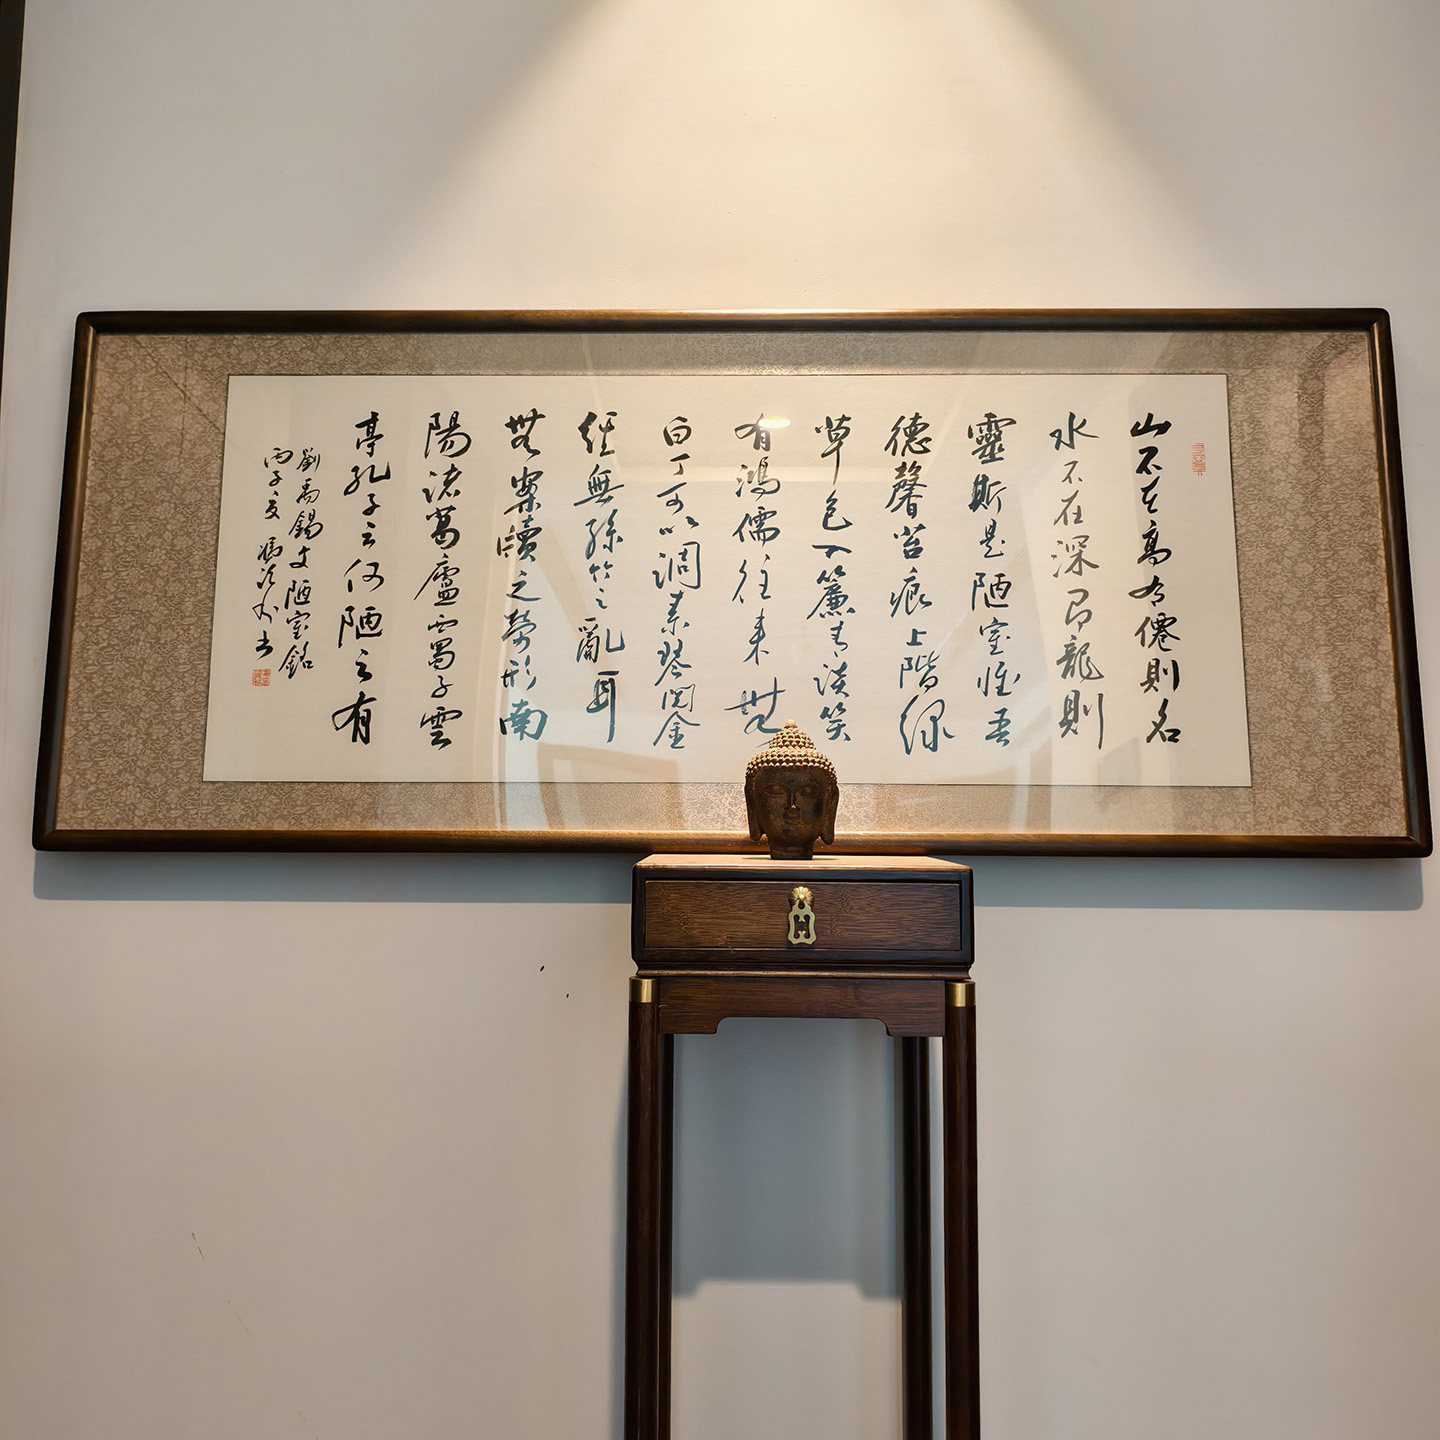 山不在高有僊則名
水不在深有龍則
靈斯是陋室惟吾
德馨苔痕上階緑
草色入簾青談笑
有鴻儒往来無
白丁可以調素琴閲金
經無絲竹之亂耳
無案牘之勞形南
陽諸葛廬西蜀子雲
亭孔子云何陋之有
劉禹錫文陋室銘
丙子夏馮